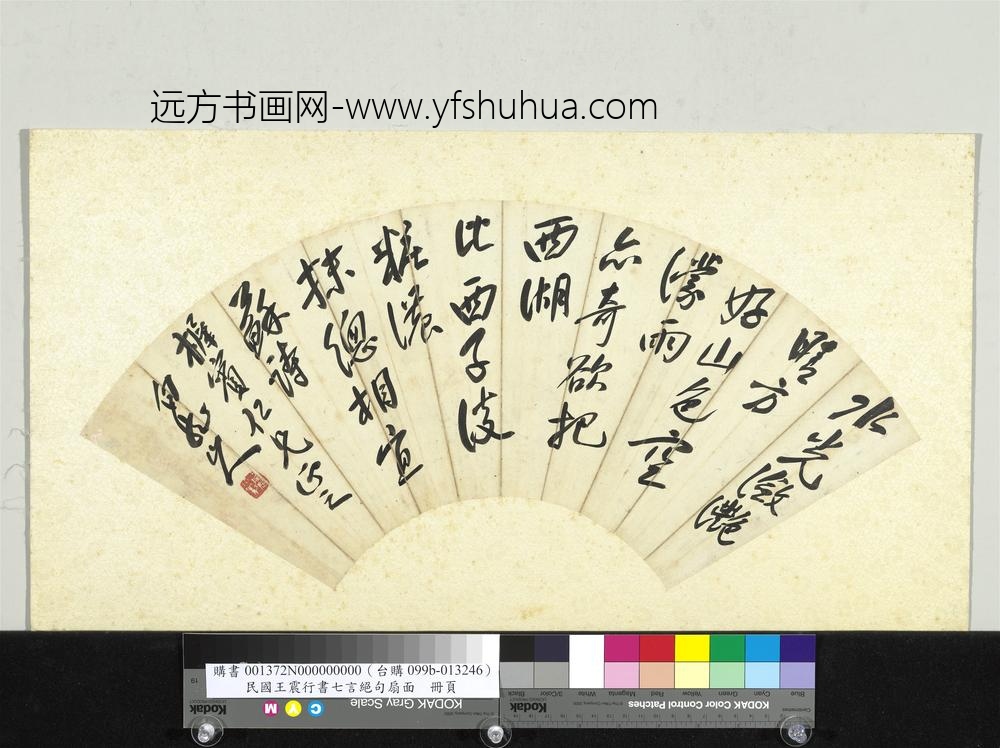 远方书画网-www.yfshuhua.com
水光瀲灩
晴方
好山色空
濛雨
亦奇欲把
西湖
比西子淡
粧濃
抹總相宜
蘇詩
仁兄正之
王震
購書 001372N000000000（台購 099b-013246）
民國王震行書七言絕句扇面 冊頁
KODAK Gray Scale
Kodak
C
Y
M
KODAK Color Control Patches
Blue
Cyan
Green
Yellow
Red
Magenta
White
3/Color
Black
Kodak
19